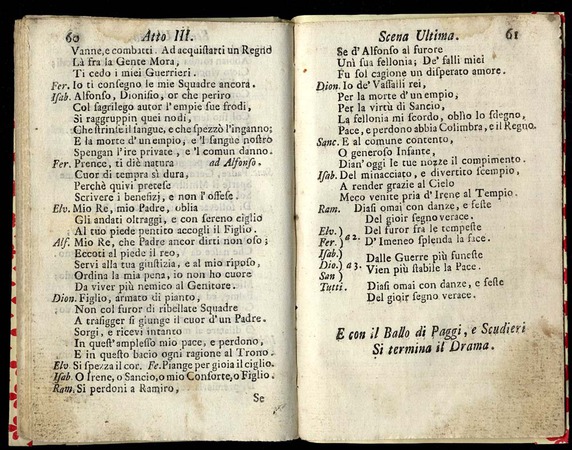 60 Atto III.
Vanne, e combatti. Ad acquistarti un Regno
Là fra la Gente Mora,
Ti cedo i miei Guerrieri.
Fer. Io ti consegno le mie Squadre ancora.
Isab. Alfonso, Dionisio, or che periro
Col sagrilego autor l'empie sue frodi,
Si raggruppin quei nodi,
Che strinse il sangue, e che spezzò l'inganno;
E la morte d'un empio, e 'l sangue nostro
Spengan l'ire private, e 'l comun danno.
Fer. Prence, ti diè natura ad Alfonso.
Cuor di tempra sì dura,
Perchè quivi pretese
Scrivere i benefizj, e non l'offese.
Elv. Mio Re, mio Padre, oblia
Gli andati oltraggi, e con sereno ciglio
Al tuo piede pentito accogli il Figlio.
Alf. Mio Re, che Padre ancor dirti non oso;
Eccoti al piede il reo,
Servi alla tua giustizia, e al mio riposo,
Ordina la mia pena, io non ho cuore
Da viver più nemico al Genitore.
Dion. Figlio, armato di pianto,
Non col furor di ribellate Squadre
A trafigger si giunge il cuor d'un Padre.
Sorgi, e ricevi intanto
In quest'amplesso mio pace, e perdono,
E in questo bacio ogni ragione al Trono.
Elv. Si spezza il cor. Fe. Piange per gioia il ciglio.
Isab. O Irene, o Sancio, o mio Conforte, o Figlio.
Ram. Si perdoni a Ramiro,
Se
Scena Ultima. 61
Se d'Alfonso al furore
Unì sua fellonia; De' falli miei
Fu sol cagione un disperato amore.
Dion. Io de' Vassalli rei,
Per la morte d'un empio,
Per la virtù di Sancio,
La fellonia mi scordo, oblìo lo sdegno,
Pace, e perdono abbia Colimbra, e il Regno.
Sanc. E al comune contento,
O generoso Infante,
Dian' oggi le tue nozze il compimento.
Isab. Del minacciato, e divertito scempio,
A render grazie al Cielo
Meco venite pria d'Irene al Tempio.
Ram. Diasi omai con danze, e feste
Del gioir segno verace.
Elv. ) Del furor fra le tempeste
Fer. ) a 2. D'Imeneo splenda la face.
Isab. )
Dio. ) a 3. Dalle Guerre più funeste
San ) Vien più stabile la Pace.
Tutti. Diasi omai con danze, e feste
Del gioir segno verace.
E con il Ballo di Paggi, e Scudieri
Si termina il Drama.